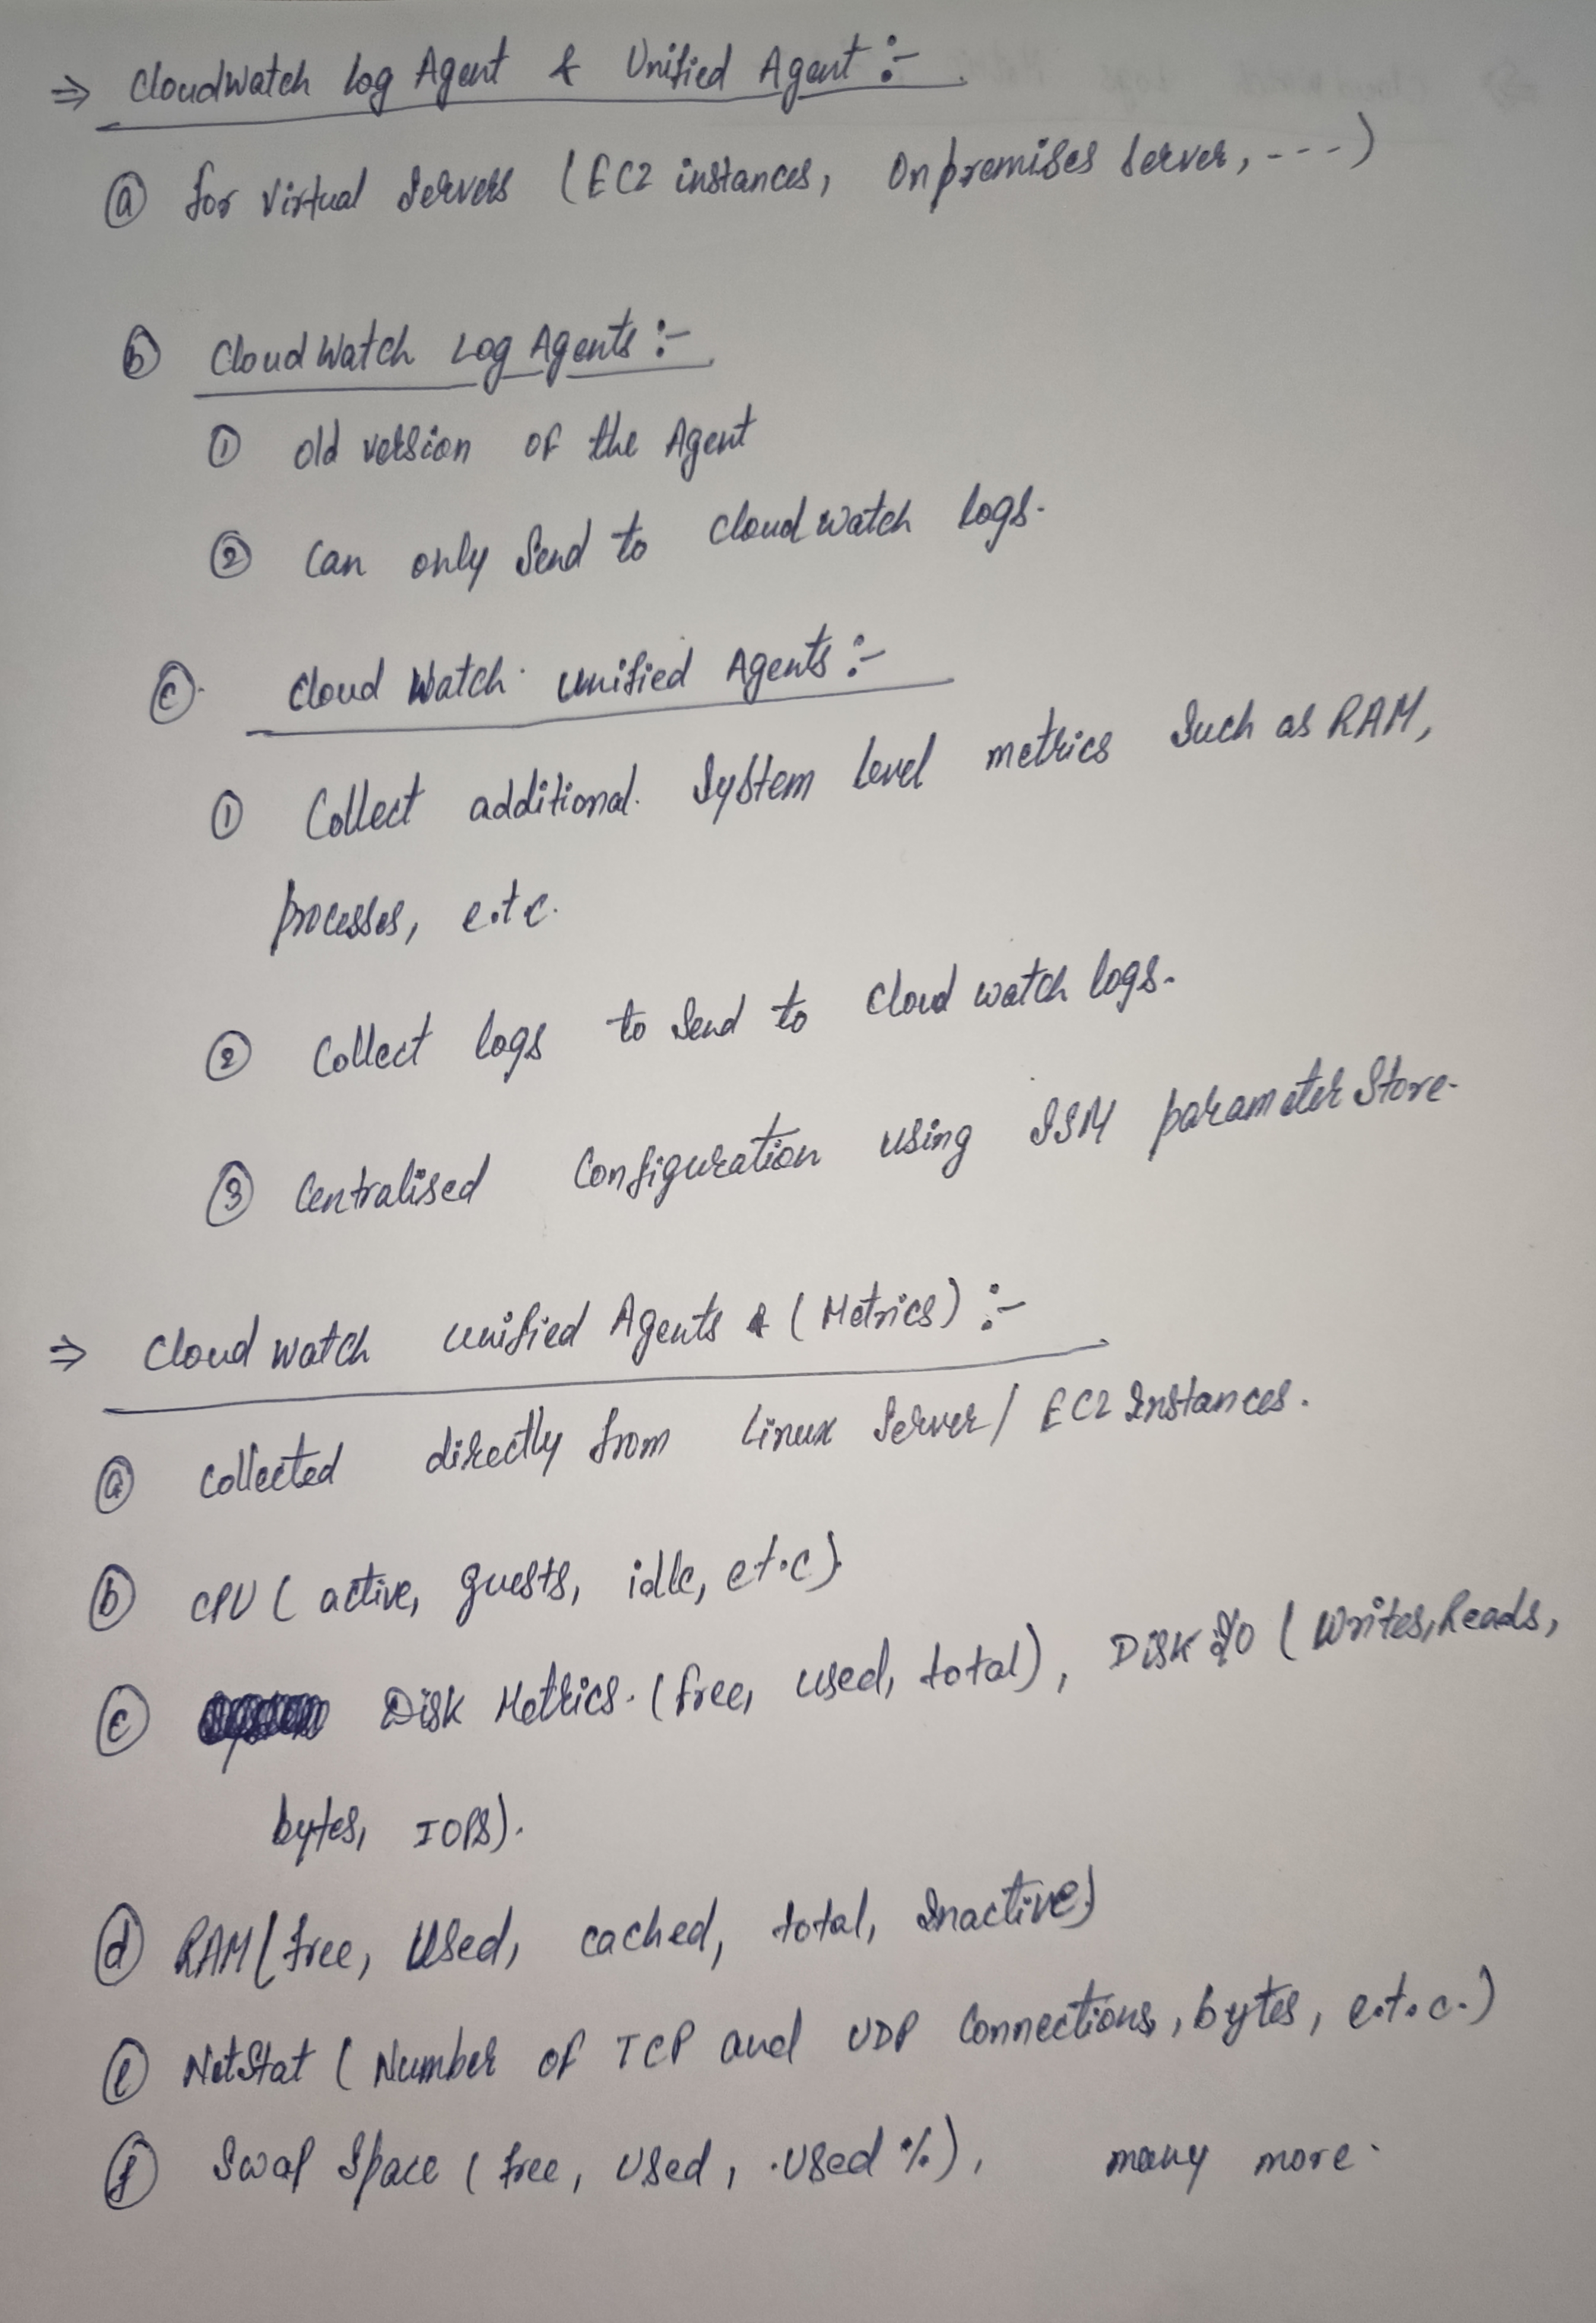 ⇒ CloudWatch Log Agent & Unified Agent :-
ⓐ for Virtual Servers (EC2 instances, Onpremises Server, ---)
ⓑ CloudWatch Log Agents :-
① old version of the Agent
② Can only Send to Cloudwatch logs.
ⓒ. Cloud Watch Unified Agents :-
① Collect additional. System level metrics Such as RAM,
processes, e.t.c.
② Collect logs to Send to Cloud watch logs.
③ Centralised Configuration using SSM parameter Store.
⇒ Cloud watch unified Agents (Metrics) :-
ⓐ Collected directly from Linux Server / EC2 Instances.
ⓑ CPU (active, guests, idle, et.c)
ⓒ Disk Metrics. (free, used, total), Disk I/O (Writes, Reads,
bytes, IOPS).
ⓓ RAM (free, Used, cached, total, Inactive)
ⓔ NetStat (Number of TCP and UDP Connections, bytes, e.t.c.)
ⓕ Swap Space (free, Used, .Used %), many more.